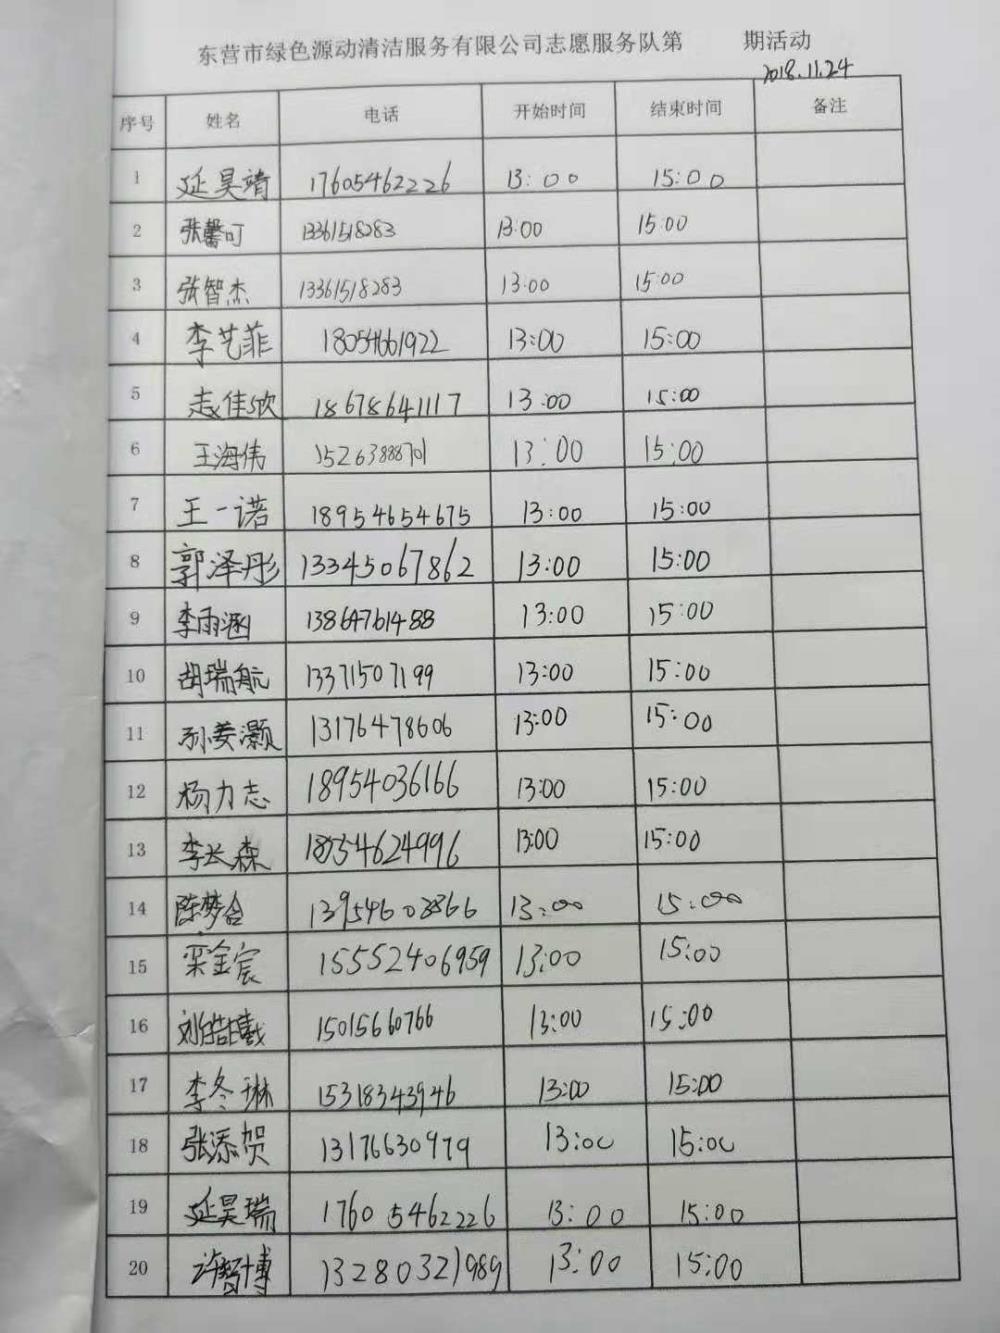 东营市绿色源动清洁服务有限公司志愿服务队第 期活动
2018.11.24
序号 姓名 电话 开始时间 结束时间 备注
1 延昊靖 17605462226 13:00 15:00
2 张馨可 13361518283 13:00 15:00
3 张智杰 13361518283 13:00 15:00
4 李艺菲 18054661922 13:00 15:00
5 佳欣 18678641117 13:00 15:00
6 王海伟 15263888701 13:00 15:00
7 王一诺 18954654675 13:00 15:00
8 郭泽彤 13345067862 13:00 15:00
9 李雨涵 13864761488 13:00 15:00
10 胡瑞航 13371507199 13:00 15:00
11 孙姜灏 13176478606 13:00 15:00
12 杨力志 18954036166 13:00 15:00
13 李长森 13:00 15:00
14 陈梦 13:00 15:00
15 栾金宸 15552406959 13:00 15:00
16 刘皓曦 15015660766 13:00 15:00
17 李冬琳 15318343946 13:00 15:00
18 张添贺 13176630979 13:00 15:00
19 延昊瑞 17605462226 13:00 15:00
20 许智博 13280321989 13:00 15:00